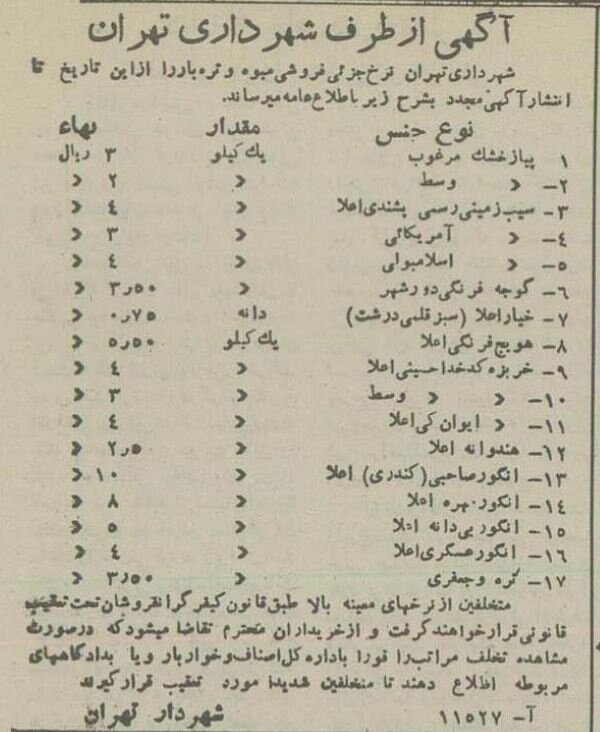 آگهی از طرف شهرداری تهران
شهرداری تهران نرخ جزئی فروشی میوه و تره بار را از این تاریخ تا
انتشار آگهی مجدد بشرح زیر باطلاع عامه میرساند.
نوع جنس مقدار بهاء
۱ پیاز خشك مرغوب یك کیلو ۳ ریال
۲- « وسط « ۲ «
۳- سیب زمینی رسمی پشندی اعلا « ٤ «
٤- « آمریکائی « ۳ «
۵- « اسلامبولی « ٤ «
٦- گوجه فرنگی دورشهر « ۳٫۵۰ «
۷- خیار اعلا (سبز قلمی درشت) دانه ۰٫۷۵ «
۸- هویج فرنگی اعلا یك کیلو ۵٫۵۰ «
۹- خربزه کدخدا حسینی اعلا « ٤ «
۱۰- « « وسط « ۳ «
۱۱- « ایوان کی اعلا « ٤ «
۱۲- هندوانه اعلا « ۲٫۵ «
۱۳- انگور صاحبی (کندری) اعلا « ۱۰ «
۱٤- انگور نهره اعلا « ۸ «
۱۵- انگور بی دانه اعلا « ۵ «
۱٦- انگور عسگری اعلا « ٤ «
۱۷- تره و جعفری « ۳٫۵۰ «
متخلفین از نرخهای معینه بالا طبق قانون کیفر گرانفروشان تحت تعقیب
قانونی قرار خواهند گرفت و از خریداران محترم تقاضا میشود که در صورت
مشاهده تخلف مراتب را فورا باداره کل اصناف و خواربار و یا بدادگاههای
مربوطه اطلاع دهند تا متخلفین شدیدا مورد تعقیب قرار گیرند
آ- ۱۱۵۲۷ شهردار تهران